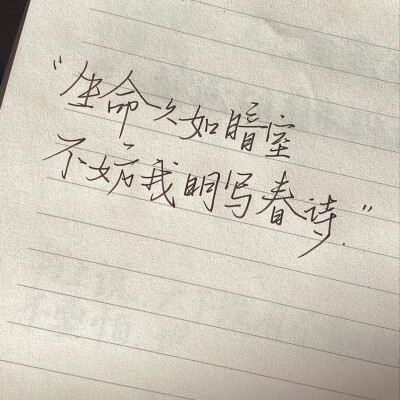 "生命久如暗室
不妨我明写春诗."